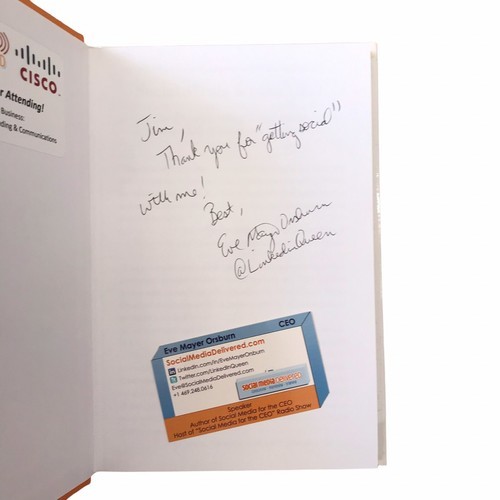 CISCO™
Attending!
Business:
ding & Communications
Jim,
Thank you for "getting social"
with me!
Best,
Eve Mayer Orsburn
@LinkedinQueen
Eve Mayer Orsburn CEO
SocialMediaDelivered.com
in Linkedin.com/in/EveMayerOrsburn
Twitter.com/LinkedInQueen
Eve@SocialMediaDelivered.com
+1 469.248.0616
SOCIAL MEDIA DELIVERED
Speaker
Author of Social Media for the CEO
Host of "Social Media for the CEO" Radio Show